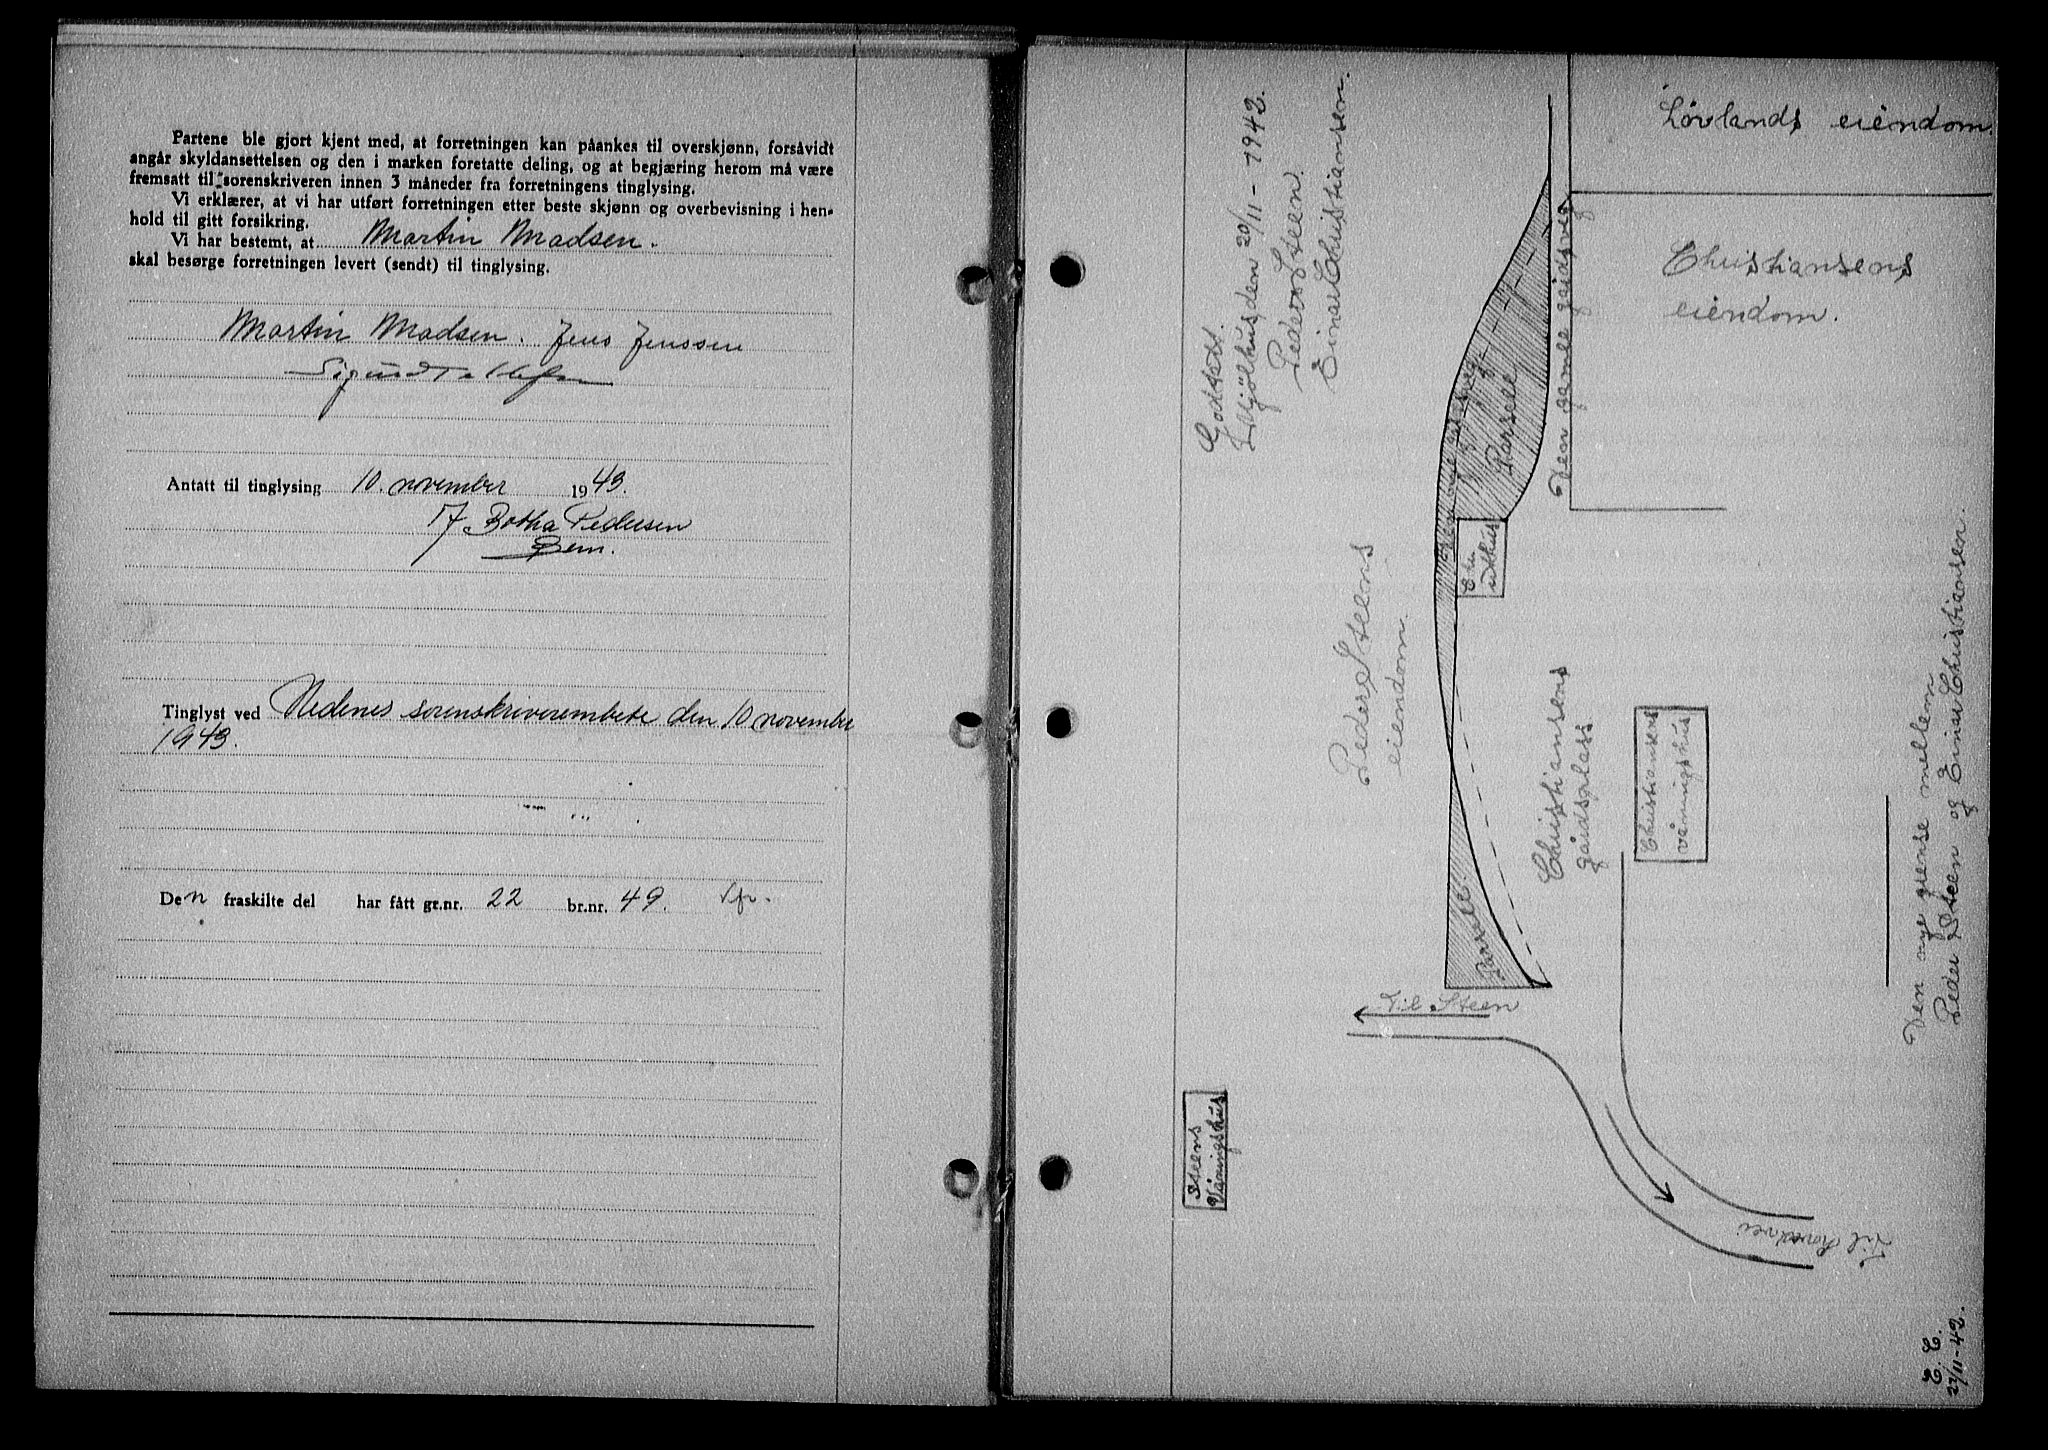 Partene ble gjort kjent med, at forretningen kan påankes til overskjønn, forsåvidt
angår skyldansettelsen og den i marken foretatte deling, og at begjæring herom må være
fremsatt til sorenskriveren innen 3 måneder fra forretningens tinglysing.
Vi erklærer, at vi har utført forretningen etter beste skjønn og overbevisning i hen-
hold til gitt forsikring.
Vi har bestemt, at Martin Madsen.
skal besørge forretningen levert (sendt) til tinglysing.
Martin Madsen. Jens Jenssen
Antatt til tinglysing 10. november 1943.
Botha Pedersen
Tinglyst ved Nedenes sorenskriverembete den 10 november
1943.
Den fraskilte del har fått gr.nr. 22 br.nr. 49.
Godtatt.
Mjölhus, den 20/11 - 1942.
Peder Steen.
Einar Christiansen.
Lövlands eiendom.
Christiansens
eiendom.
Den gamle gårdsveg
Den nye gårdsveg
Parsell
Chr.
uthus
Peder Steens
eiendom.
Christiansens
gårdsplass
Christiansens
våningshus
Parsell
Til Steen
Steens
Våningshus
Til hovedvei
Den nye grense mellem
Peder Steen og Einar Christiansen.
E. C.
22/11-42.